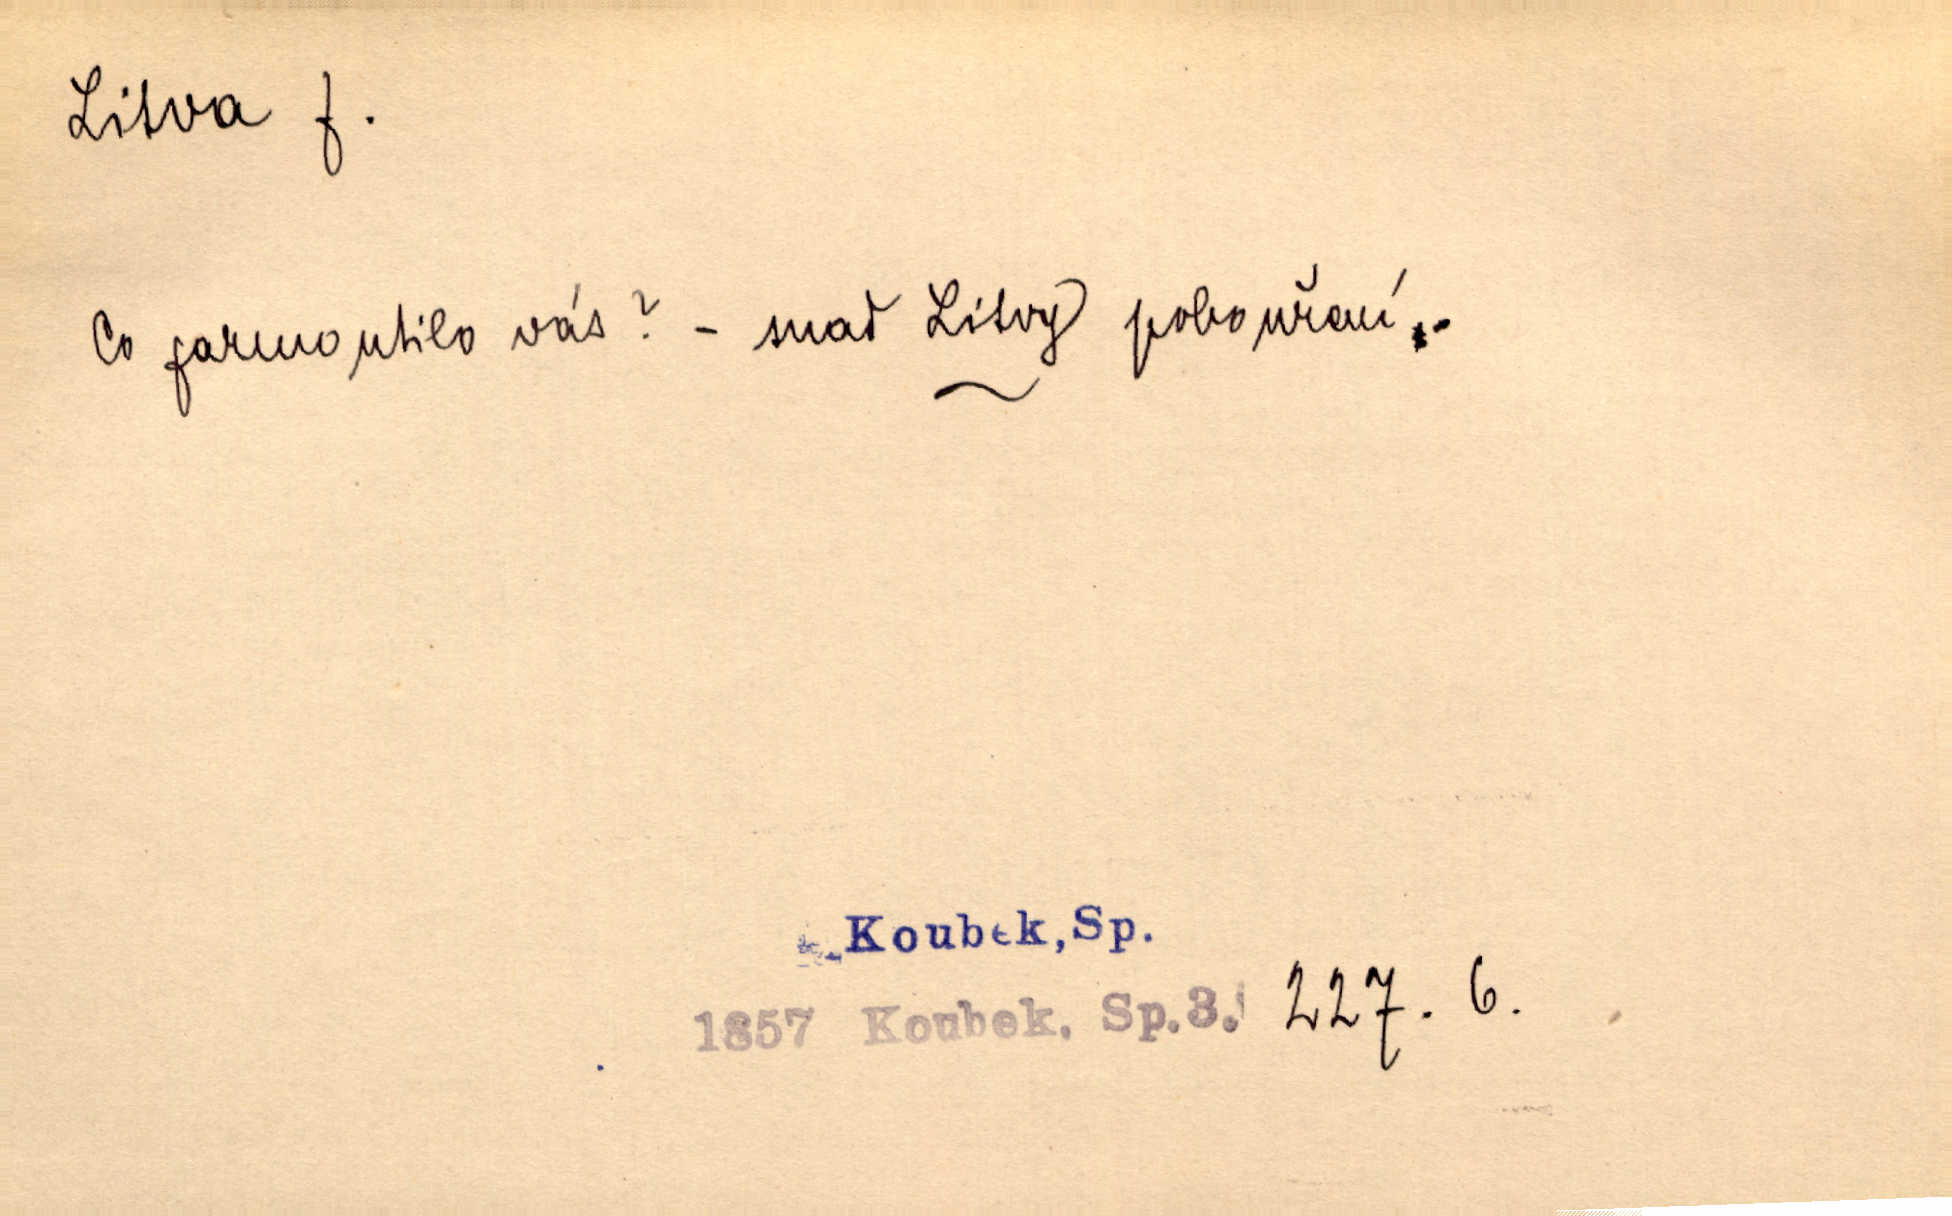 Litva f.
Co zarmoutilo vás? – snad Litvy pobouření..
Koubek, Sp.
1857 Koubek. Sp.3. 227. 6.